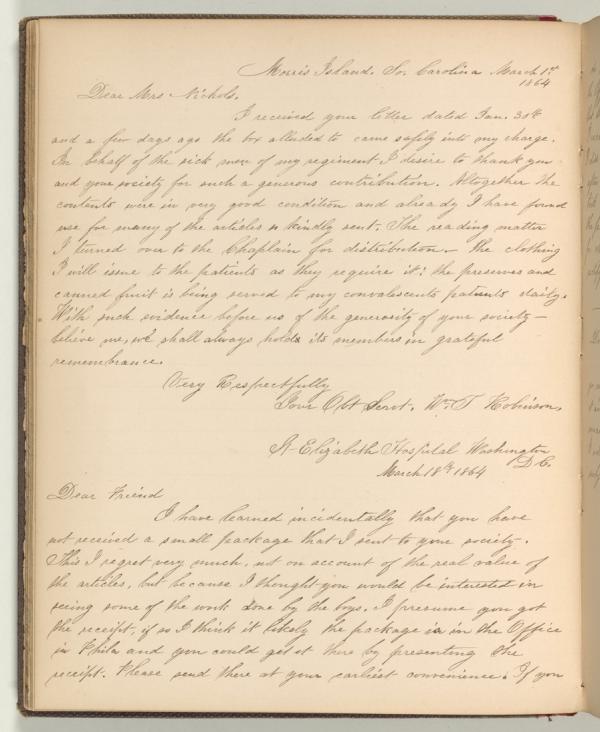 Morris Island. So. Carolina March 1st
1864
Dear Mrs Nichols.
I received your letter dated Jan. 30th
and a few days ago the box alluded to came safely into my charge.
In behalf of the sick men of my regiment, I desire to thank you
and your society for such a generous contribution. Altogether the
contents were in very good condition and already I have found
use for many of the articles so kindly sent. The reading matter
I turned over to the Chaplain for distribution. — The clothing
I will issue to the patients as they require it: the preserves and
canned fruit is being served to my convalescents patients daily.
With such evidence before us of the generosity of your society —
believe me, we shall always holds its members in grateful
remembrance.
Very Respectfully
Your Obt Servt. Wm T Robinson,
St Elizabeth Hospital Washington
D C.
March 18th 1864
Dear Friend
I have learned incidentally that you have
not received a small package that I sent to your society.
This I regret very much, not on account of the real value of
the articles, but because I thought you would be interested in
seeing some of the work done by the boys. I presume you got
the receipt, if so I think it likely the package is in the Office
in Phila and you could get it there by presenting the
receipt. Please send there at your earliest convenience. If you